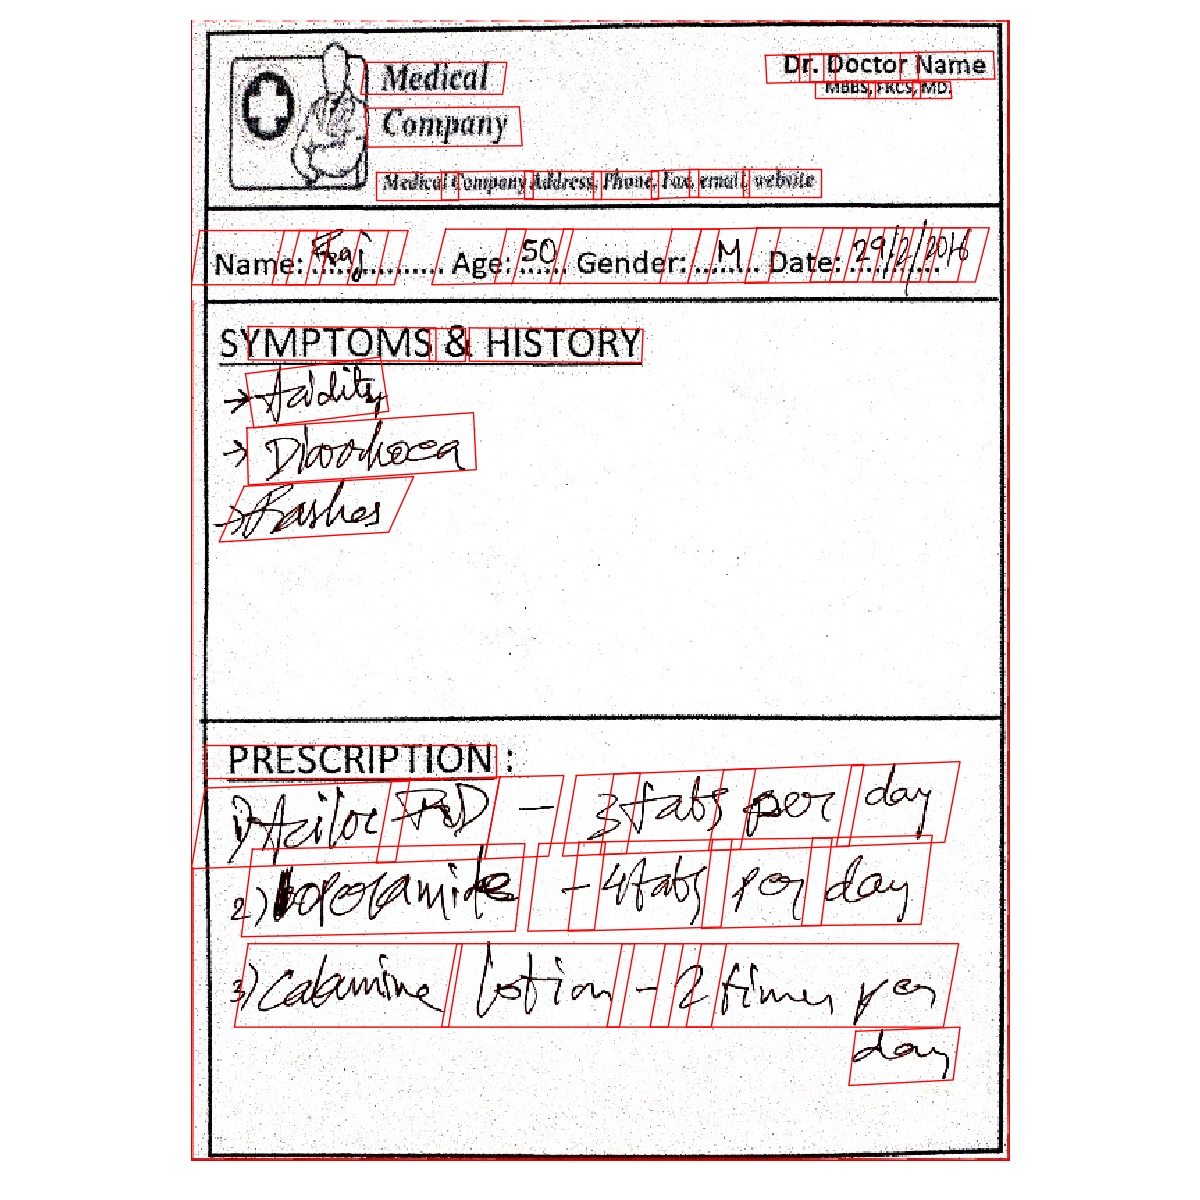 Medical
Company
Dr. Doctor Name
MBBS, FRCS, MD.
Medical Company Address, Phone, Fax, email, website
Name: Raj Age: 50 Gender: M Date: 29/2/2016
SYMPTOMS & HISTORY
→ Acidity
→ Diarrhoea
→ Rashes
PRESCRIPTION :
1) Aciloc RD - 3 tabs per day
2) loperamide - 4 tabs per day
3) Calamine lotion - 2 times per
day